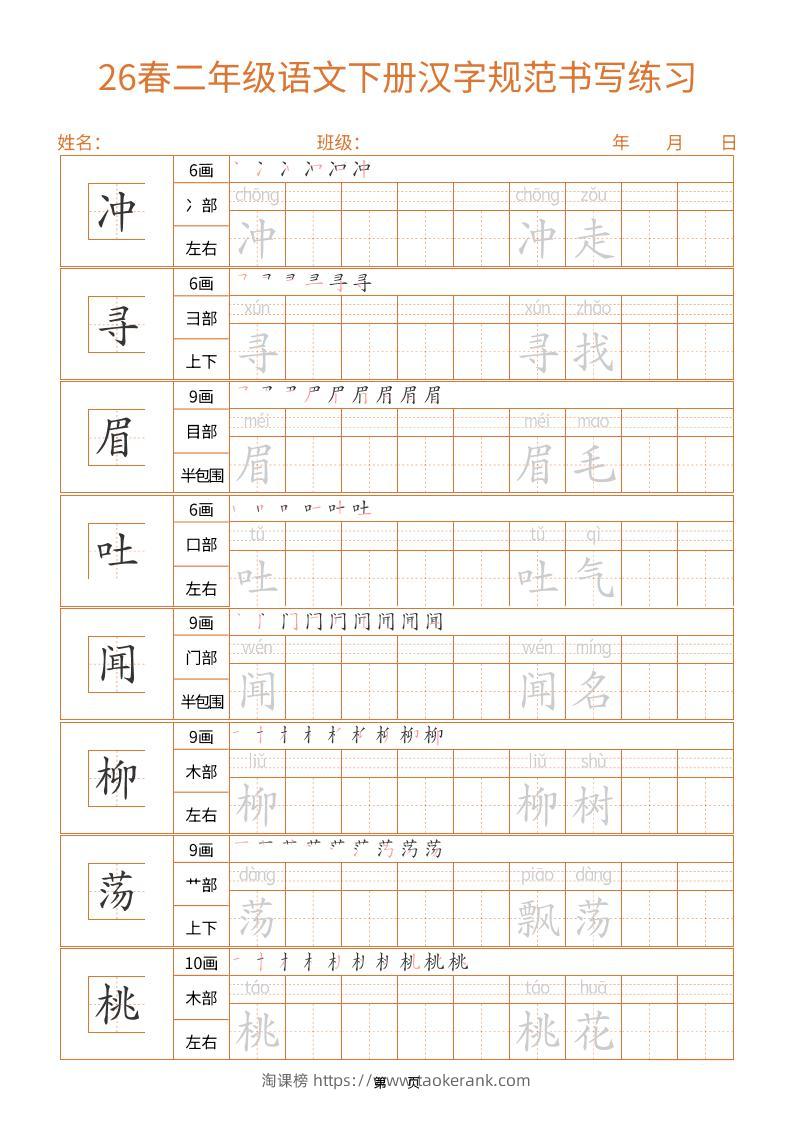 26春二年级语文下册汉字规范书写练习
姓名： 班级： 年 月 日
冲 6画 丶 冫 冫 冲
冫部 chōng chōng zǒu
左右 冲 冲 走
寻 6画 寻 寻
彐部 xún xún zhǎo
上下 寻 寻 找
眉 9画 眉 眉 眉
目部 méi méi mao
半包围 眉 眉 毛
吐 6画 吐 吐
口部 tǔ tǔ qì
左右 吐 吐 气
闻 9画 门 门 闩 闻 闻 闻 闻
门部 wén wén míng
半包围 闻 闻 名
柳 9画 柳 柳
木部 liǔ liǔ shù
左右 柳 柳 树
荡 9画 荡 荡
艹部 dàng piāo dàng
上下 荡 飘 荡
桃 10画 桃 桃 桃
木部 táo táo huā
左右 桃 桃 花
淘课榜 https://www.taokerank.com
第 页